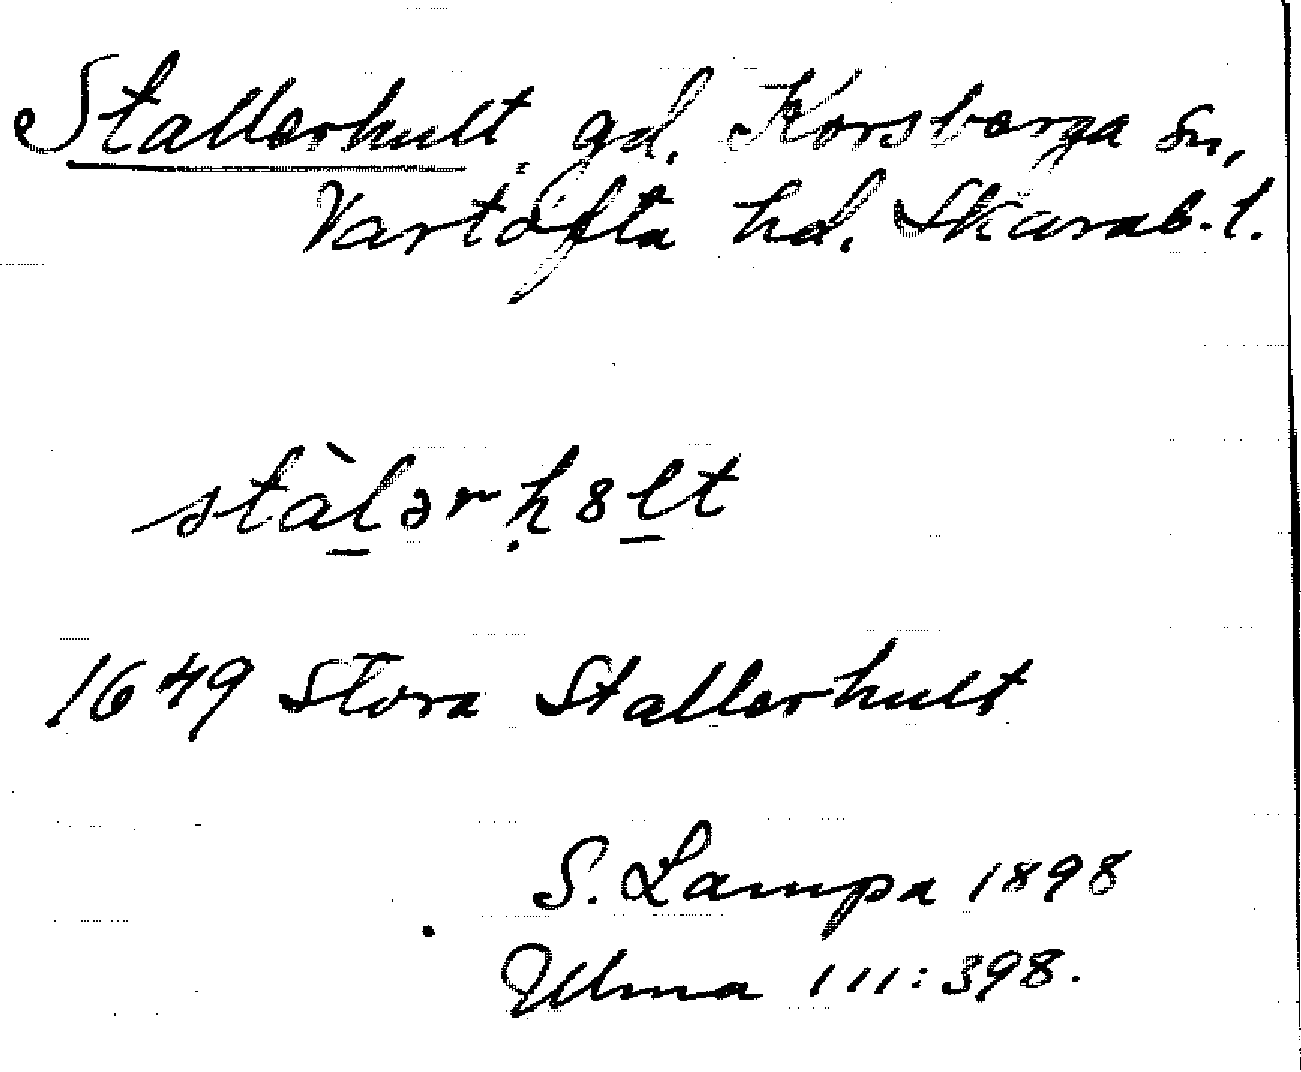 Stallerhult, gd. Korsberga sn,
Vartofta hd. Skarab. l.
stàl̲ərḥ8l̲t
1649 Stora Stallerhult
S. Lampa 1898
Ulma 111:398.